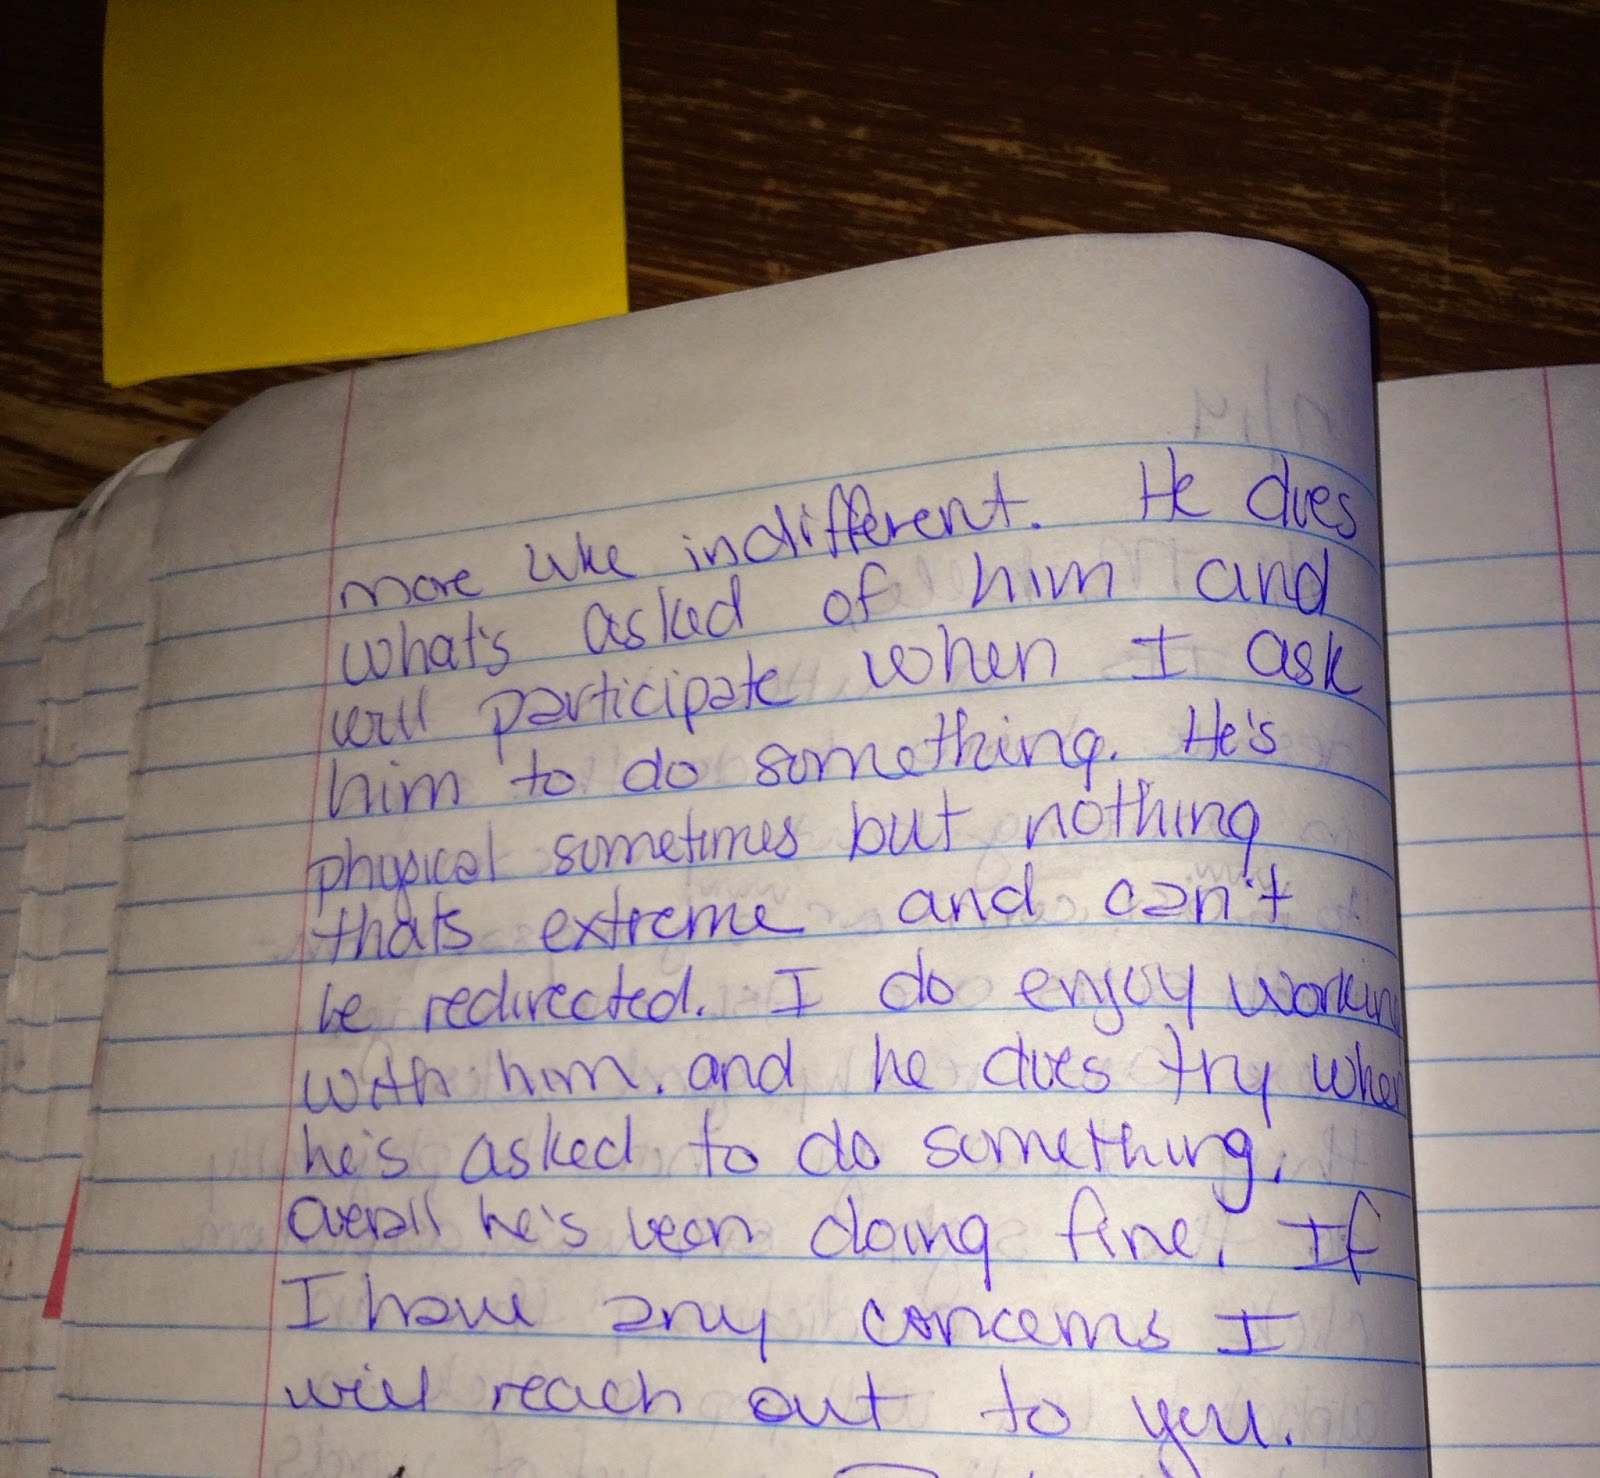 more like indifferent. He does
what's asked of him and
will participate when I ask
him to do something. He's
physical sometimes but nothing
thats extreme and can't
be redirected. I do enjoy workin
with him. and he does try when
he's asked to do something.
Overall he's been doing fine. If
I have any concerns I
will reach out to you.